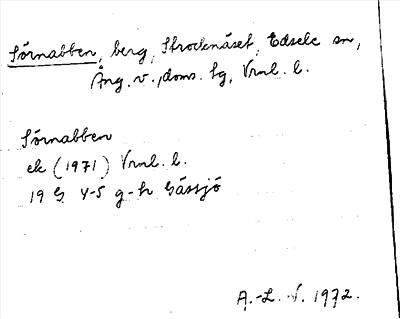 Sörnabben, berg, Strocknäset, Edsele sn,
Ång. v., doms. sg, Vrnl. l.
Sörnabben
ek (1971) Vrnl. l.
19 G 4-5 g-h Gåssjö
A.-L. N. 1972.